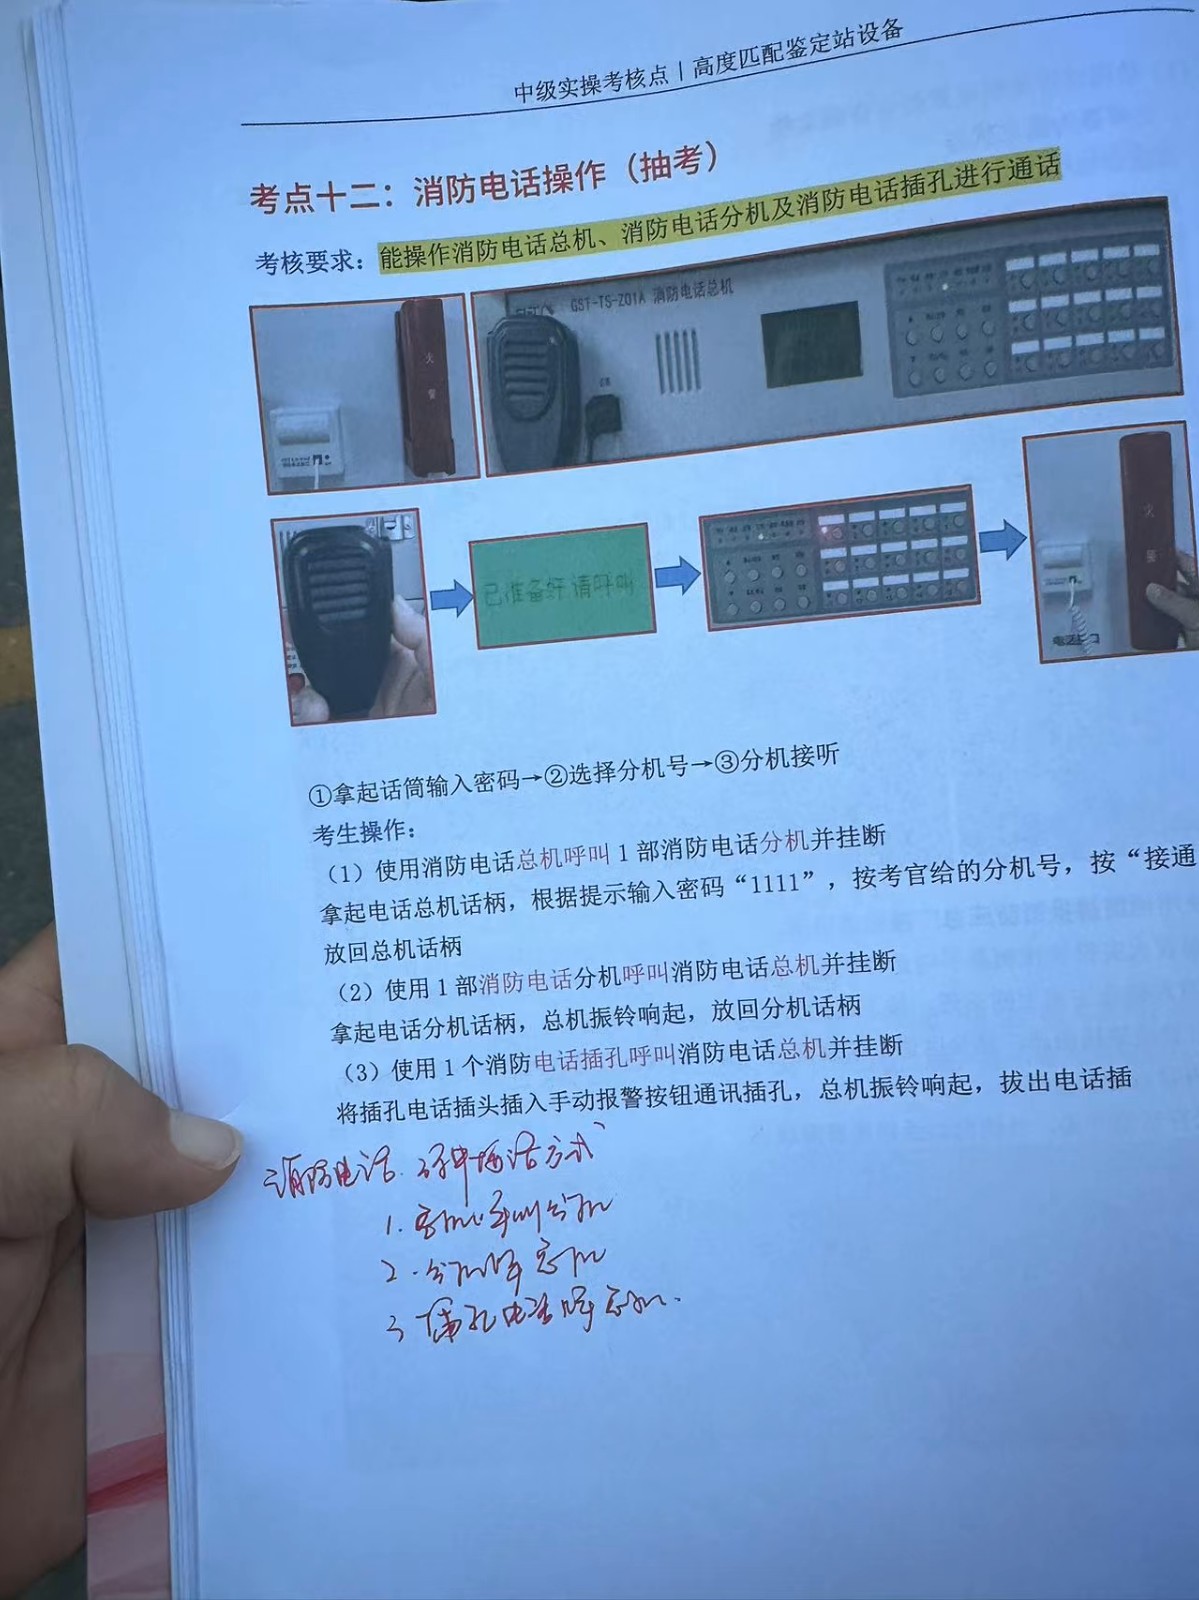 中级实操考核点｜高度匹配鉴定站设备
考点十二：消防电话操作（抽考）
考核要求：能操作消防电话总机、消防电话分机及消防电话插孔进行通话
GST-TS-Z01A 消防电话总机
火
警
已准备好 请呼叫
火
警
①拿起话筒输入密码→②选择分机号→③分机接听
考生操作：
（1）使用消防电话总机呼叫1部消防电话分机并挂断
拿起电话总机话柄，根据提示输入密码“1111”，按考官给的分机号，按“接通
放回总机话柄
（2）使用1部消防电话分机呼叫消防电话总机并挂断
拿起电话分机话柄，总机振铃响起，放回分机话柄
（3）使用1个消防电话插孔呼叫消防电话总机并挂断
将插孔电话插头插入手动报警按钮通讯插孔，总机振铃响起，拔出电话插
消防电话 3种接话方式
1. 总机呼叫分机
2. 分机呼总机
3 插孔电话呼总机.